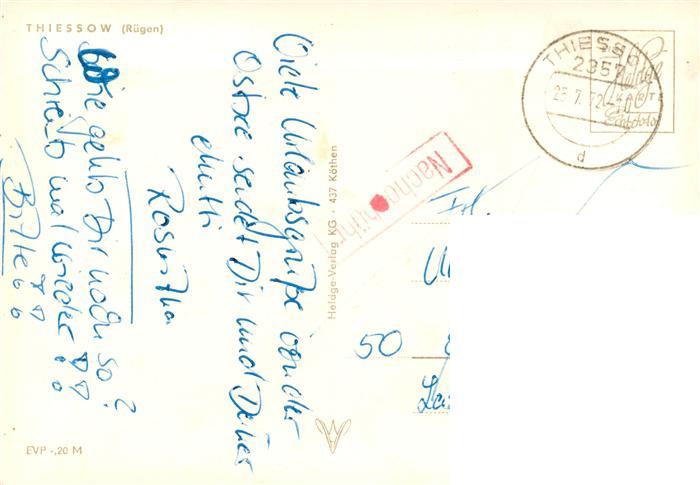 THIESSOW (Rügen)
Viele Urlaubsgrüße von der
Ostsee sendet Dir und Deiner
Mutti
Roswitha
Wie geht's Dir noch so?
Schreib mal wieder!!
Bitte!!
EVP -,20 M
Heldge-Verlag KG · 437 Köthen
Nachgebühr
THIESSO
2357
25.7.72
d
Heldge
KARTE
Echtfoto
Frl.
50